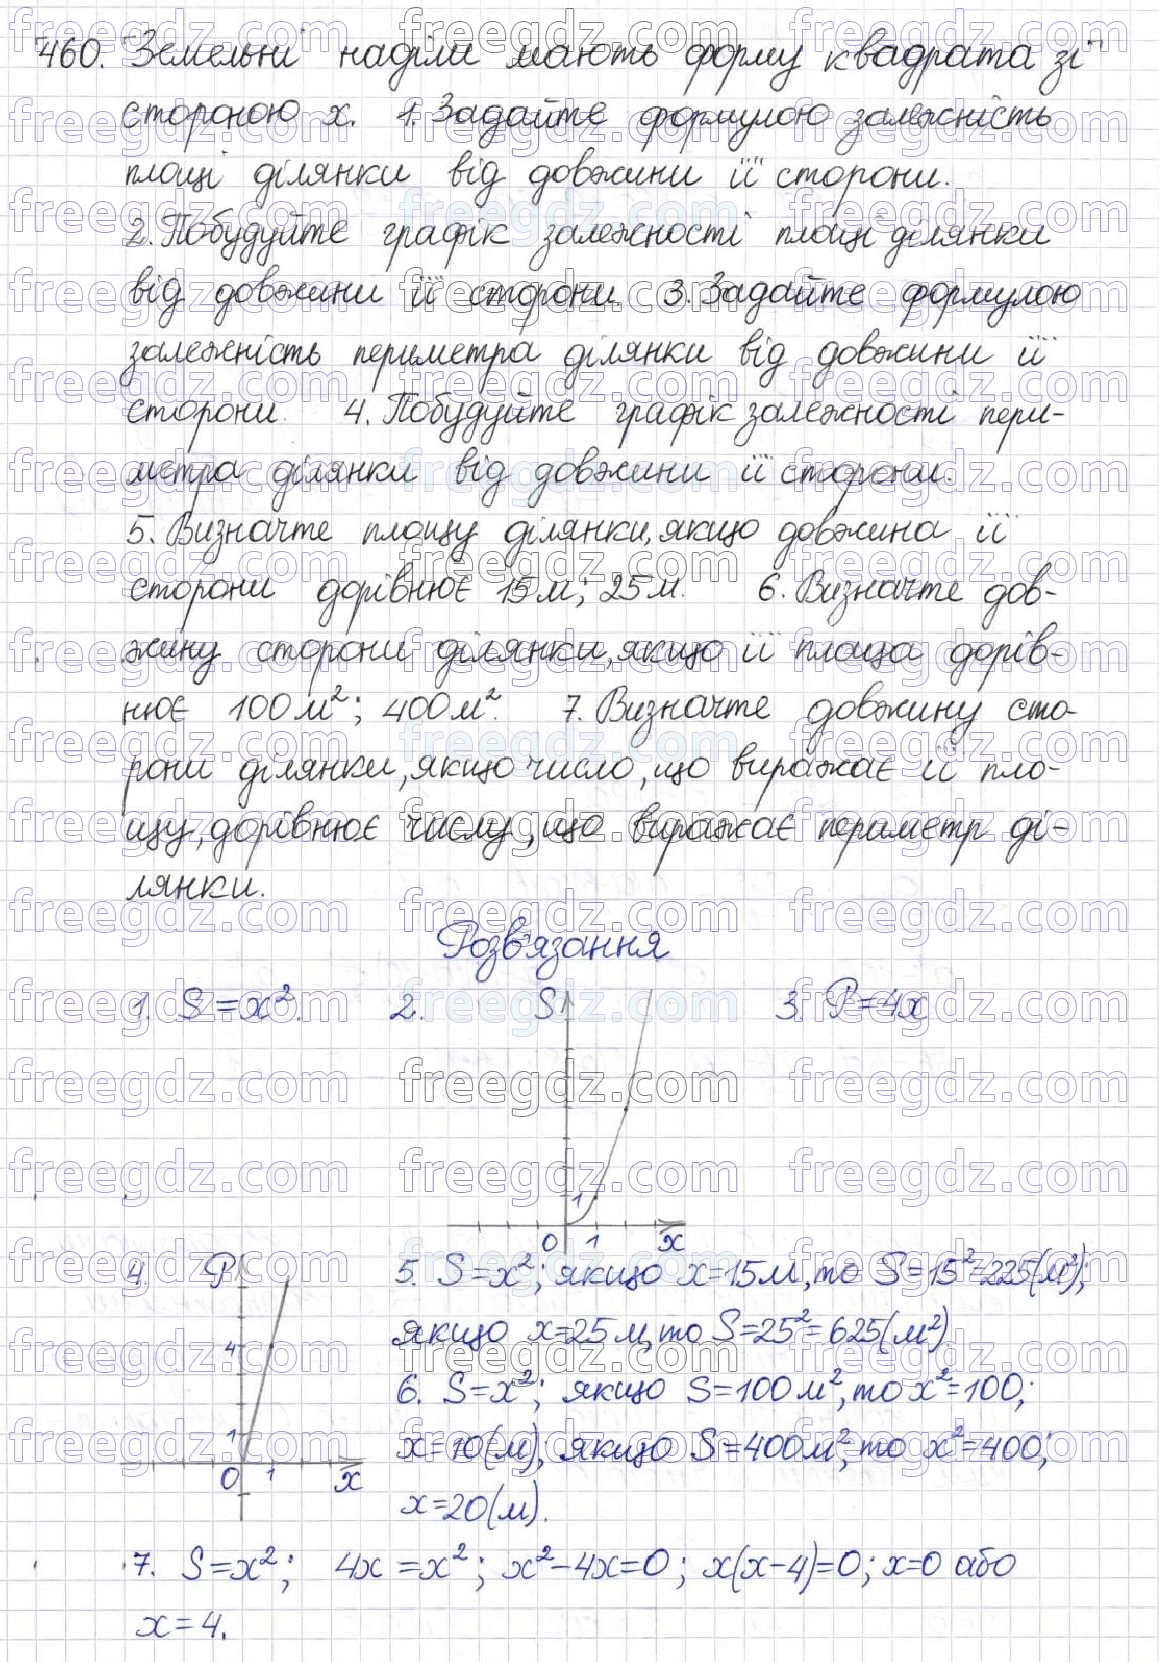 460. Земельні наділи мають форму квадрата зі
стороною x. 1. Задайте формулою залежність
площі ділянки від довжини її сторони.
2. Побудуйте графік залежності площі ділянки
від довжини її сторони. 3. Задайте формулою
залежність периметра ділянки від довжини її
сторони. 4. Побудуйте графік залежності пери-
метра ділянки від довжини її сторони.
5. Визначте площу ділянки, якщо довжина її
сторони дорівнює 15 м; 25 м. 6. Визначте дов-
жину сторони ділянки, якщо її площа дорів-
нює 100 м²; 400 м². 7. Визначте довжину сто-
рони ділянки, якщо число, що виражає її пло-
щу, дорівнює числу, що виражає периметр ді-
лянки.
Розв'язання
1. S = x². 2. S 3. P = 4x
1
0 1 x
4. P
4
1
0 1 x
5. S = x²; якщо x = 15 м, то S = 15² = 225 (м²);
якщо x = 25 м, то S = 25² = 625 (м²)
6. S = x²; якщо S = 100 м², то x² = 100;
x = 10 (м); якщо S = 400 м², то x² = 400;
x = 20 (м).
7. S = x²; 4x = x²; x² - 4x = 0; x(x - 4) = 0; x = 0 або
x = 4.
freegdz.com